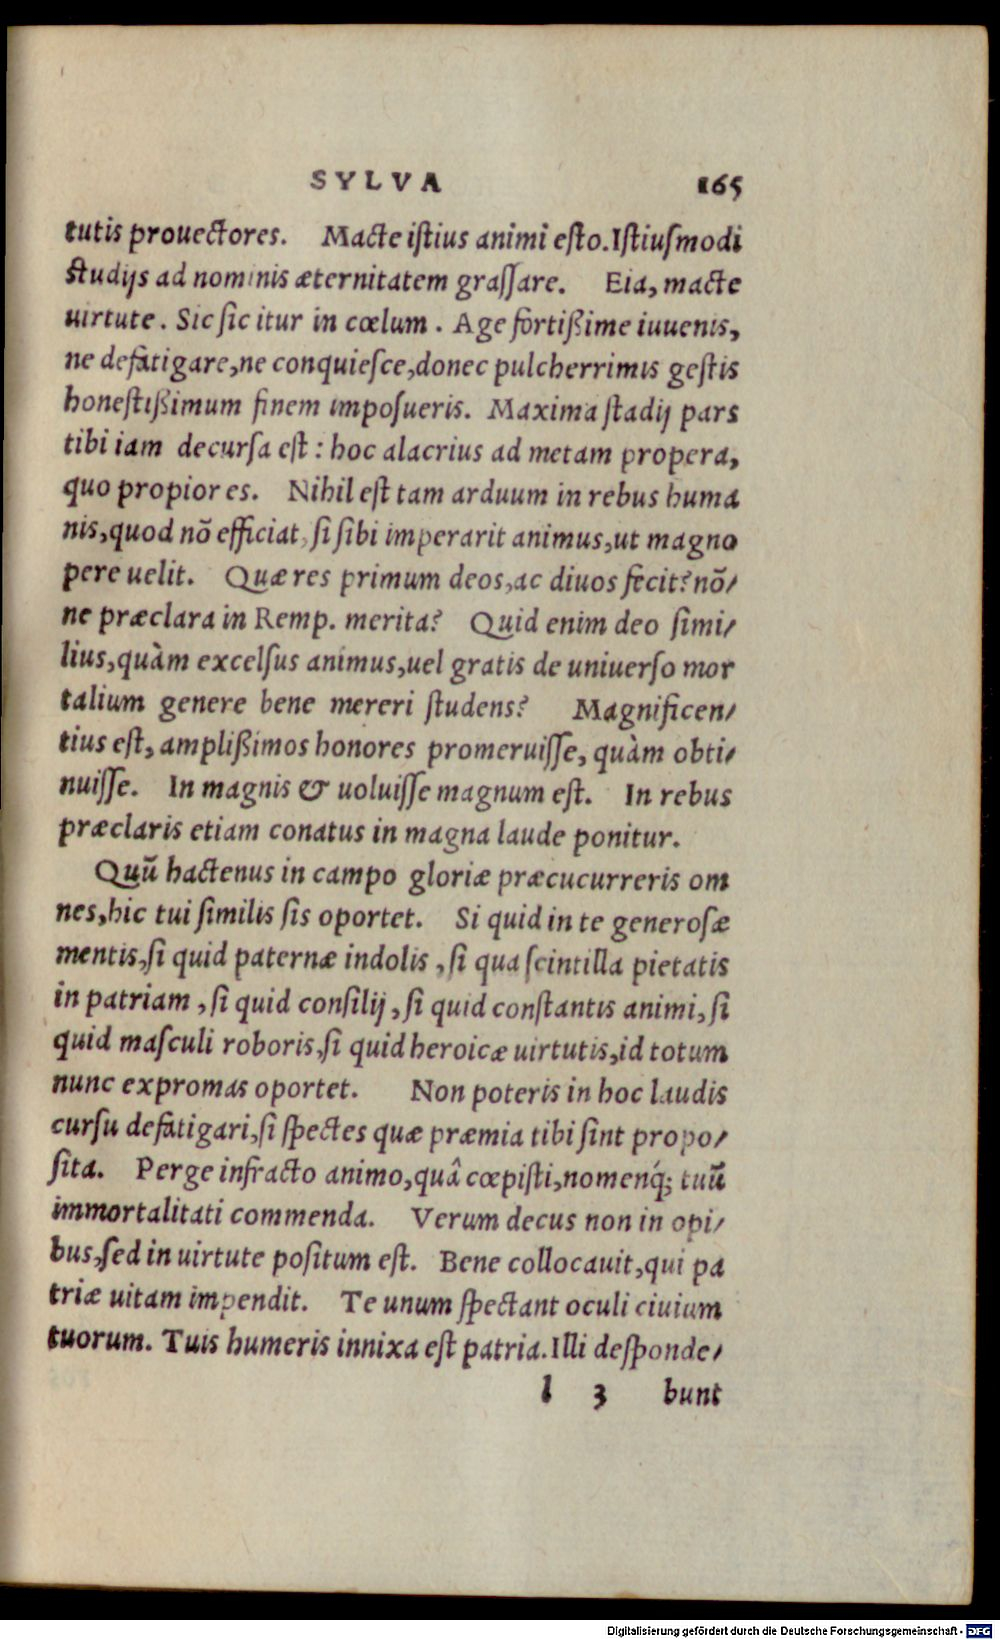 SYLVA 165
tutis prouectores. Macte iſtius animi eſto. Iſtiuſmodi
ſtudijs ad nominis æternitatem graſſare. Eia, macte
uirtute. Sic ſic itur in cœlum. Age fortißime iuuenis,
ne defatigare, ne conquieſce, donec pulcherrimis geſtis
honeſtißimum finem impoſueris. Maxima ſtadij pars
tibi iam decurſa eſt: hoc alacrius ad metam propera,
quo propior es. Nihil eſt tam arduum in rebus huma
nis, quod nõ efficiat, ſi ſibi imperarit animus, ut magno
pere uelit. Quæ res primum deos, ac diuos fecit? nõ/
ne præclara in Remp. merita? Quid enim deo ſimi/
lius, quàm excelſus animus, uel gratis de uniuerſo mor
talium genere bene mereri ſtudens? Magnificen/
tius eſt, amplißimos honores promeruiſſe, quàm obti/
nuiſſe. In magnis & uoluiſſe magnum eſt. In rebus
præclaris etiam conatus in magna laude ponitur.
Quũ hactenus in campo gloriæ præcucurreris om
nes, hic tui ſimilis ſis oportet. Si quid in te generoſæ
mentis, ſi quid paternæ indolis, ſi qua ſcintilla pietatis
in patriam, ſi quid conſilij, ſi quid conſtantis animi, ſi
quid maſculi roboris, ſi quid heroicæ uirtutis, id totum
nunc expromas oportet. Non poteris in hoc laudis
curſu defatigari, ſi ſpectes quæ præmia tibi ſint propo/
ſita. Perge infracto animo, quâ cœpiſti, nomenq́; tuũ
immortalitati commenda. Verum decus non in opi/
bus, ſed in uirtute poſitum eſt. Bene collocauit, qui pa
triæ uitam impendit. Te unum ſpectant oculi ciuium
tuorum. Tuis humeris innixa eſt patria. Illi deſponde/
l 3 bunt
Digitalisierung gefördert durch die Deutsche Forschungsgemeinschaft - DFG